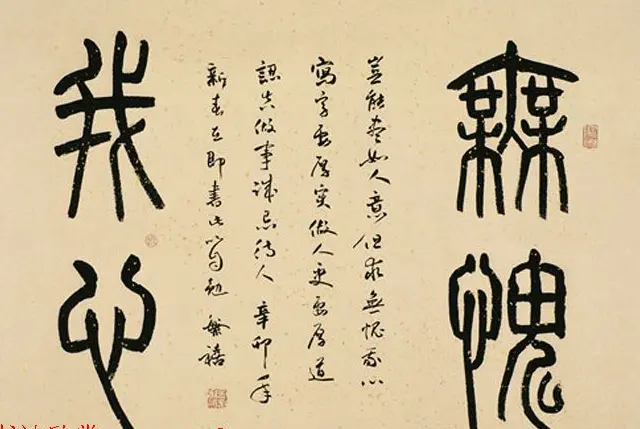 無愧
豈能盡如人意但求無愧我心
寫字要厚實做人更要厚道
認真做事誠忠待人 辛卯年
新春在即書此以自勉
我心